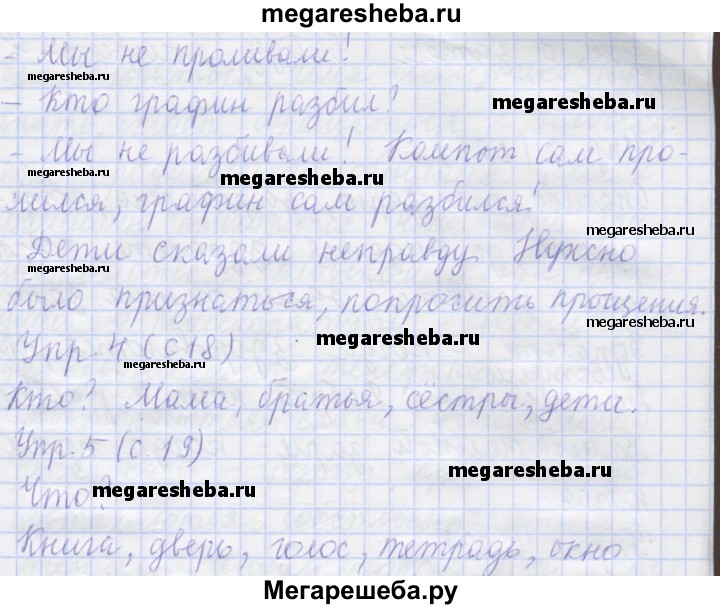 megaresheba.ru
- Мы не проливали!
megaresheba.ru
- Кто графин разбил?
megaresheba.ru
- Мы не разбивали! Компот сам про-
megaresheba.ru
megaresheba.ru
лился, графин сам разбился!
megaresheba.ru
Дети сказали неправду. Нужно
megaresheba.ru
было признаться, попросить прощения.
megaresheba.ru
Упр. 4 (с 18)
megaresheba.ru
megaresheba.ru
Кто? Мама, братья, сёстры, дети.
Упр. 5 (с. 19)
megaresheba.ru
Что?
megaresheba.ru
Книга, дверь, голос, тетрадь, окно
Мегарешеба.ру